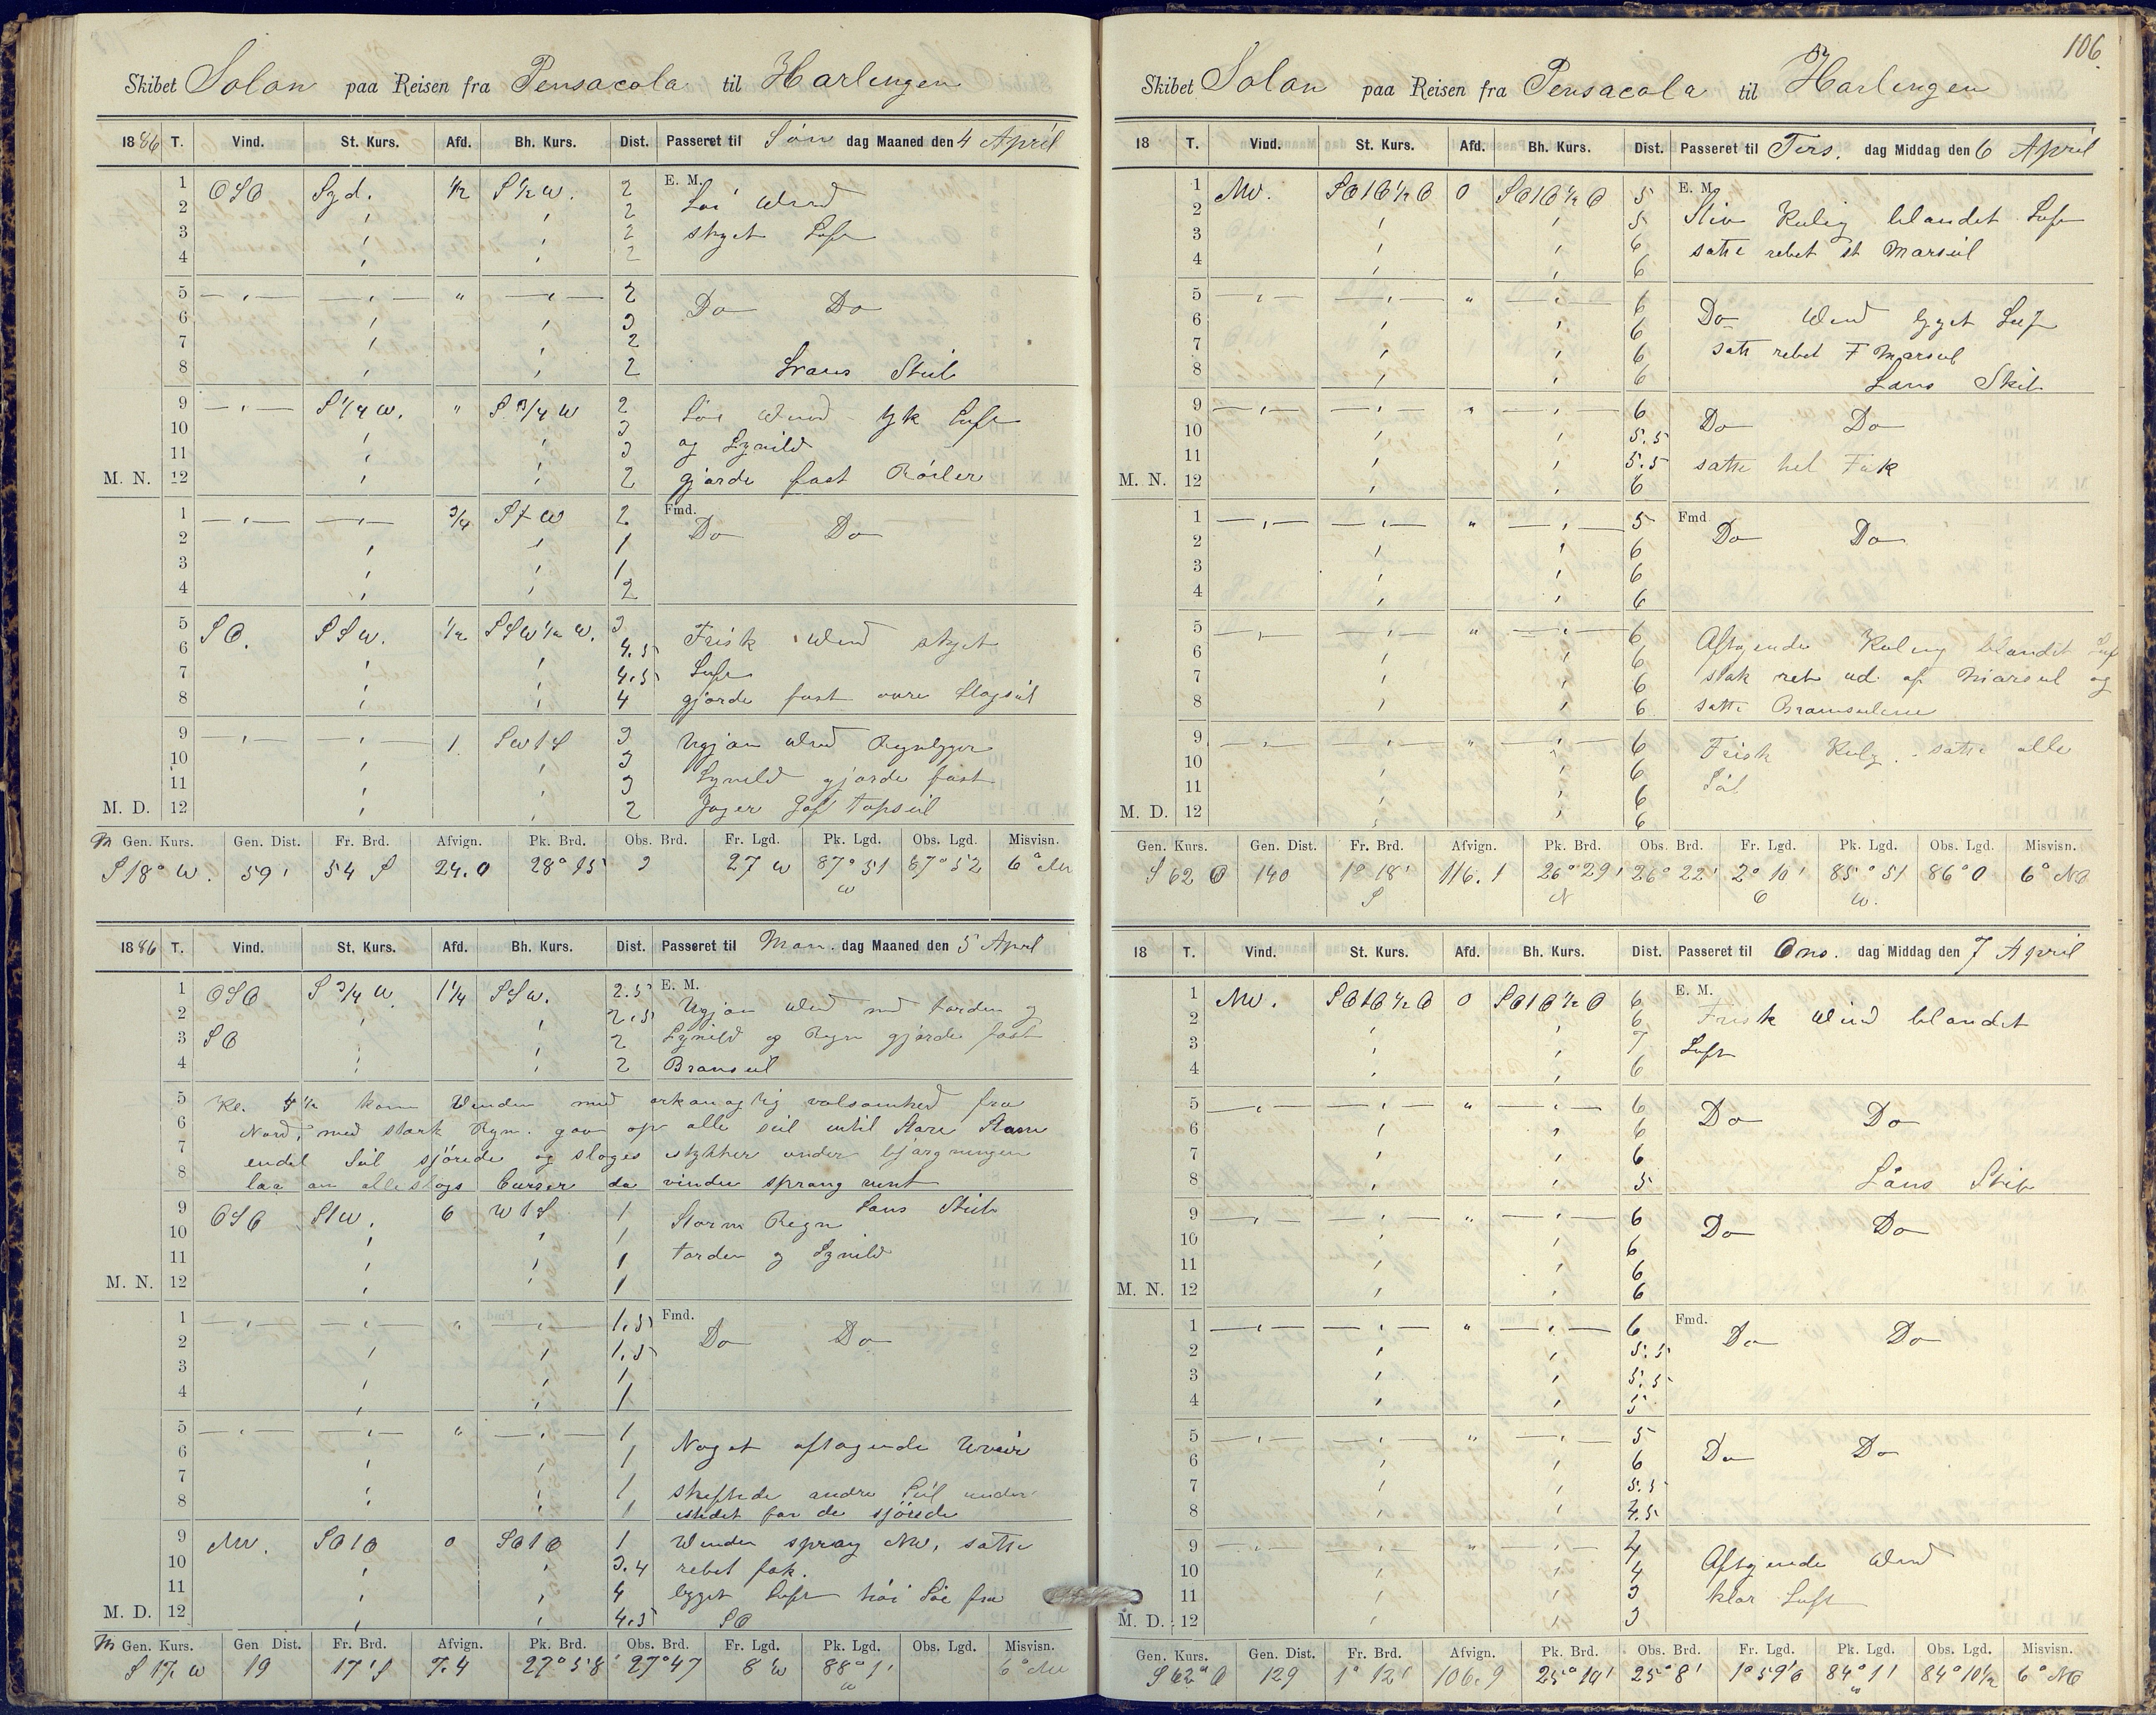 Skibet Solon paa Reisen fra Pensacola til Harlingen
1886 T. Vind. St. Kurs. Afd. Bh. Kurs. Dist. Passeret til Søn dag Maaned den 4 April
1 OSO Syd. 1/2 S 1/2 W. 2 E. M.
2 2 Løi Wind
3 2 skyet Luft
4 2
5 2 Do Do
6 3
7 2
8 2 Læns Skib
9 S 1/4 W. " S 3/4 W 2 Løi Wind tyk Luft
10 3 og Lynild
11 3
M. N. 12 2 gjorde fast Röiler
1 3/4 S t W 2 Fmd. Do Do
2 1
3 1
4 2
5 SO. SSW. 1/2 SSW 1/2 W. 3
6 4.5 Frisk Wind skyet
7 4.5 Luft
8 4 gjorde fast øvre Stagseil
9 1 SW t S 3 Ugjæn Wind Regnbyger
10 3 Lynild gjorde fast
11 3
M. D. 12 2 Jager Gaf Topseil
M Gen. Kurs. Gen. Dist. Fr. Brd. Afvign. Pk. Brd. Obs. Brd. Fr. Lgd. Pk. Lgd. Obs. Lgd. Misvisn.
S 18° W. 59' 54 S 24.0 28° 15 27 W 87° 51 W 87° 52 6°
1886 T. Vind. St. Kurs. Afd. Bh. Kurs. Dist. Passeret til Man. dag Maaned den 5 April
1 OSO S 3/4 W. 1 1/4 SSW. 2.5 E. M.
2 2.5 Ugjæn Wind med torden og
3 SO 2 Lynild og Regn gjorde fast
4 2 Bramseil
5 Kl. 4 1/2 kom Vinden med orkanaglig volsomhed fra
6 Nord, med stærk Regn. gav op alle seil intil Store Stam
7 endel Seil sjörede og sloges istykker under bjærgningen
8 laa an alleslags Curser da vinden sprang runt
9 OSO StW. 6 W t S 1 Læns Skib
10 1 Storm Regn
11 1 torden og Lynild
M. N. 12 1
1 " 1.5 Fmd. Do Do
2 1.5
3 1
4 1
5 " 1
6 1 Noget aftagende Uveir
7 1 skiftede andre Seil under
8 1 istedet for de sjörede
9 NW. SO t O 0 SO t O 1 Winden sprang NW, satte
10 3.4 rebet fok.
11 4 bygget Luft höi Söe fra
M. D. 12 4.5 SO
M Gen. Kurs. Gen Dist. Fr. Brd. Afvign. Pk. Brd. Obs. Brd. Fr. Lgd. Pk. Lgd. Obs. Lgd. Misvisn.
S 17. W 19 17' S 7.4 27° 58' 27° 47 8' W 88° 1' W 6°
106.
Skibet Solon paa Reisen fra Pensacola til Harlingen
18 T. Vind. St. Kurs. Afd. Bh. Kurs. Dist. Passeret til Tirs. dag Middag den 6 April
1 NW. SO t O 1/2 O 0 SO t O 1/2 O 5 E. M.
2 5 Stiv Kuling blandet Luft
3 6 satte rebet st Marseil
4 6
5 " 6 Do Wind bygget Luft
6 6
7 6 satte rebet F Marseil
8 6 Læns Skib
9 " 6 Do Do
10 5.5
11 5.5 satte hel Fok
M. N. 12 6
1 " 5 Fmd Do Do
2 6
3 6
4 6
5 " 6 Aftagende Kuling blandet Luf
6 6
7 6 stak reb ud af Marseil og
8 6 satte Bramseilene
9 " 6 Frisk Kulg. satte alle
10 6
11 6 Seil
M. D. 12 6
Gen. Kurs. Gen. Dist. Fr. Brd. Afvign. Pk. Brd. Obs. Brd. Fr. Lgd. Pk. Lgd. Obs. Lgd. Misvisn.
S 62 O 140 1° 18' S 116.1 26° 29' N 26° 22' 2° 10' O 85° 51 W. 86° 0 6° NO
18 T. Vind. St. Kurs. Afd. Bh. Kurs. Dist. Passeret til Ons. dag Middag den 7 April
1 NW. SO t O 1/2 O 0 SO t O 1/2 O 6 E. M.
2 6 Frisk Wind blandet
3 7 Luft
4 6
5 " 6 Do Do
6 6
7 6
8 5 Læns Skib
9 " 6 Do Do
10 6
11 6
M. N. 12 6
1 " 6 Fmd. Do Do
2 5.5
3 5.5
4 5
5 5 Do Do
6 6
7 5.5
8 4.5
9 " 4
10 4 Aftagende Wind
11 3 klar Luft
M. D. 12 3
Gen. Kurs. Gen. Dist. Fr. Brd. Afvign. Pk. Brd. Obs. Brd. Fr. Lgd. Pk. Lgd. Obs. Lgd. Misvisn.
S 62° O 129 1° 12' 106.9 25° 10' 25° 8' 1° 59' O 84° 1' W 84° 10 1/2 6° NO